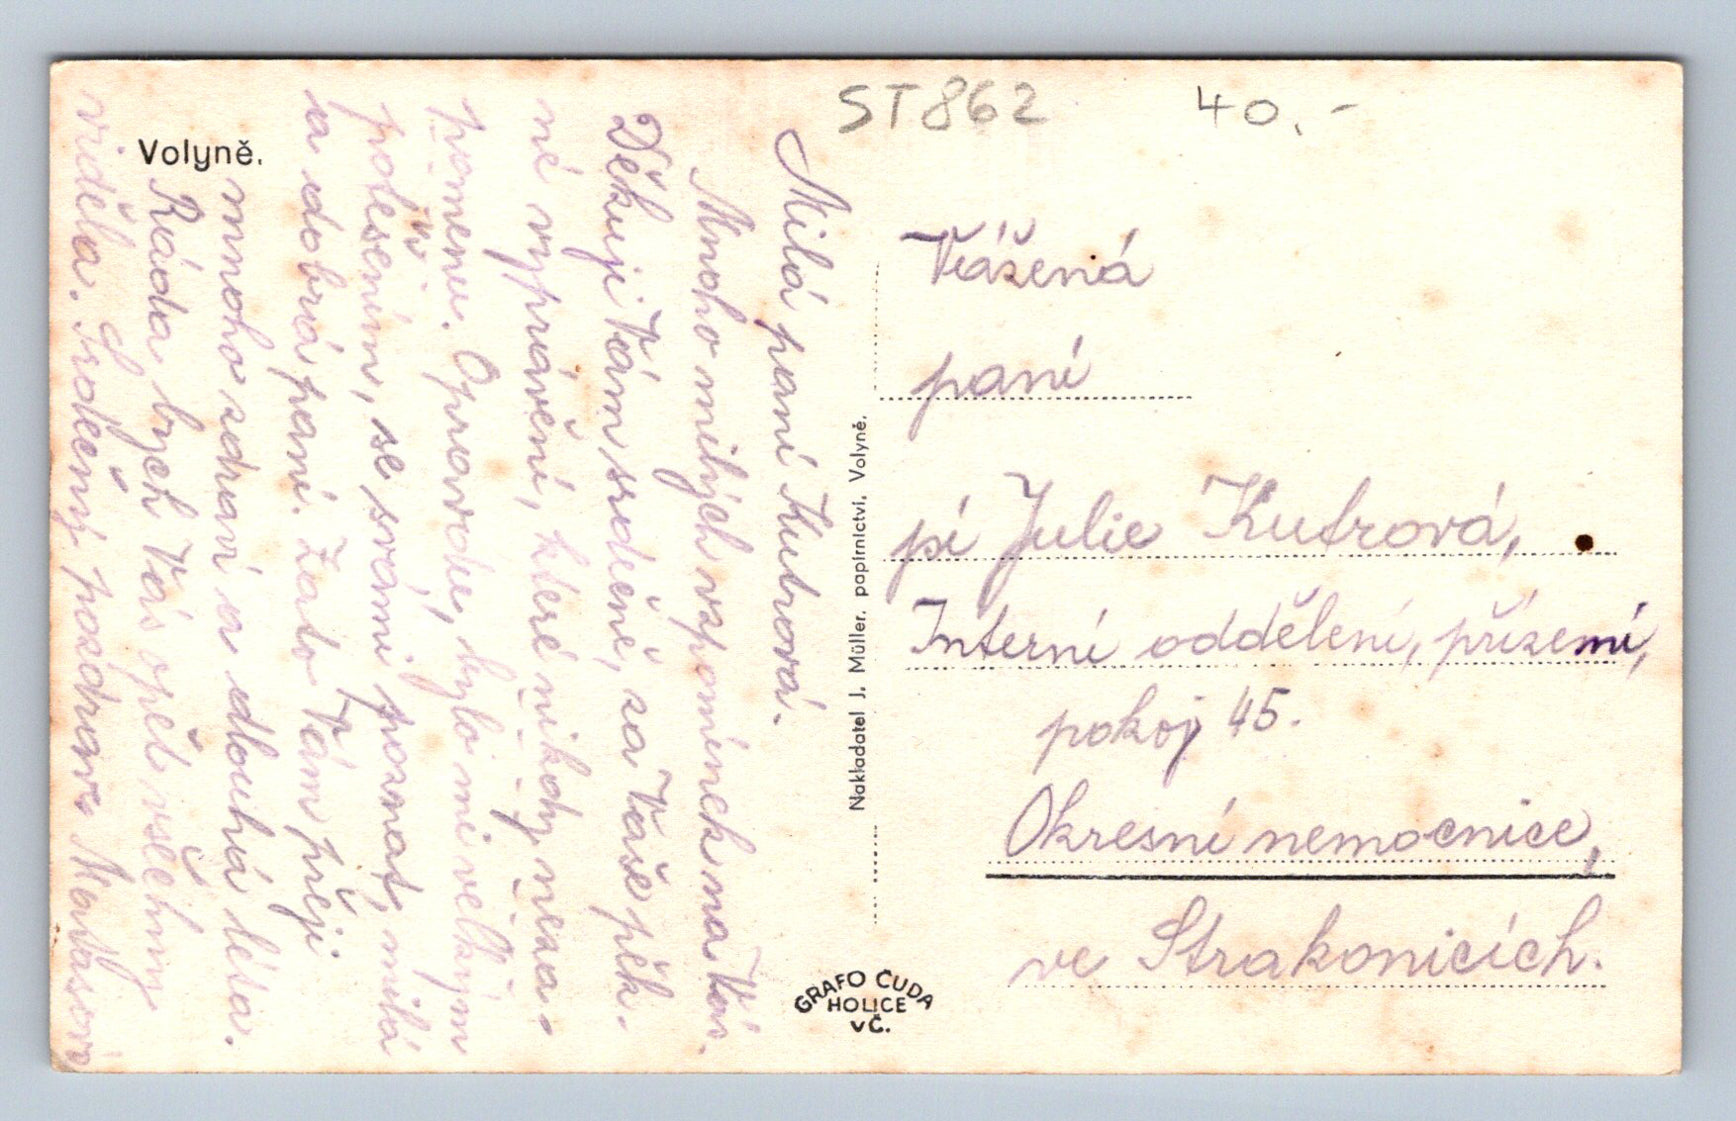 ST862 40.-
Volyně.
Milá paní Kutrová.
Mnoho milých vzpomínek na Vás.
Děkuji Vám srdečně, za Vaše pěk-
né vyprávění, které nikdy neza-
pomenu. Opravdu, bylo mi velkým
potěšením, se svámi poznat, milá
a dobrá paní. Zato Vám přeji
mnoho zdraví a dlouhá léta.
Ráda bych Vás opět všechny
viděla. Srdečný pozdrav
Vážená
paní
pí Julie Kutrová,
Interní oddělení, přízemí,
pokoj 45.
Okresní nemocnice,
ve Strakonicích.
Nakladatel J. Müller, papírnictví, Volyně.
GRAFO ČUDA
HOLICE
vČ.